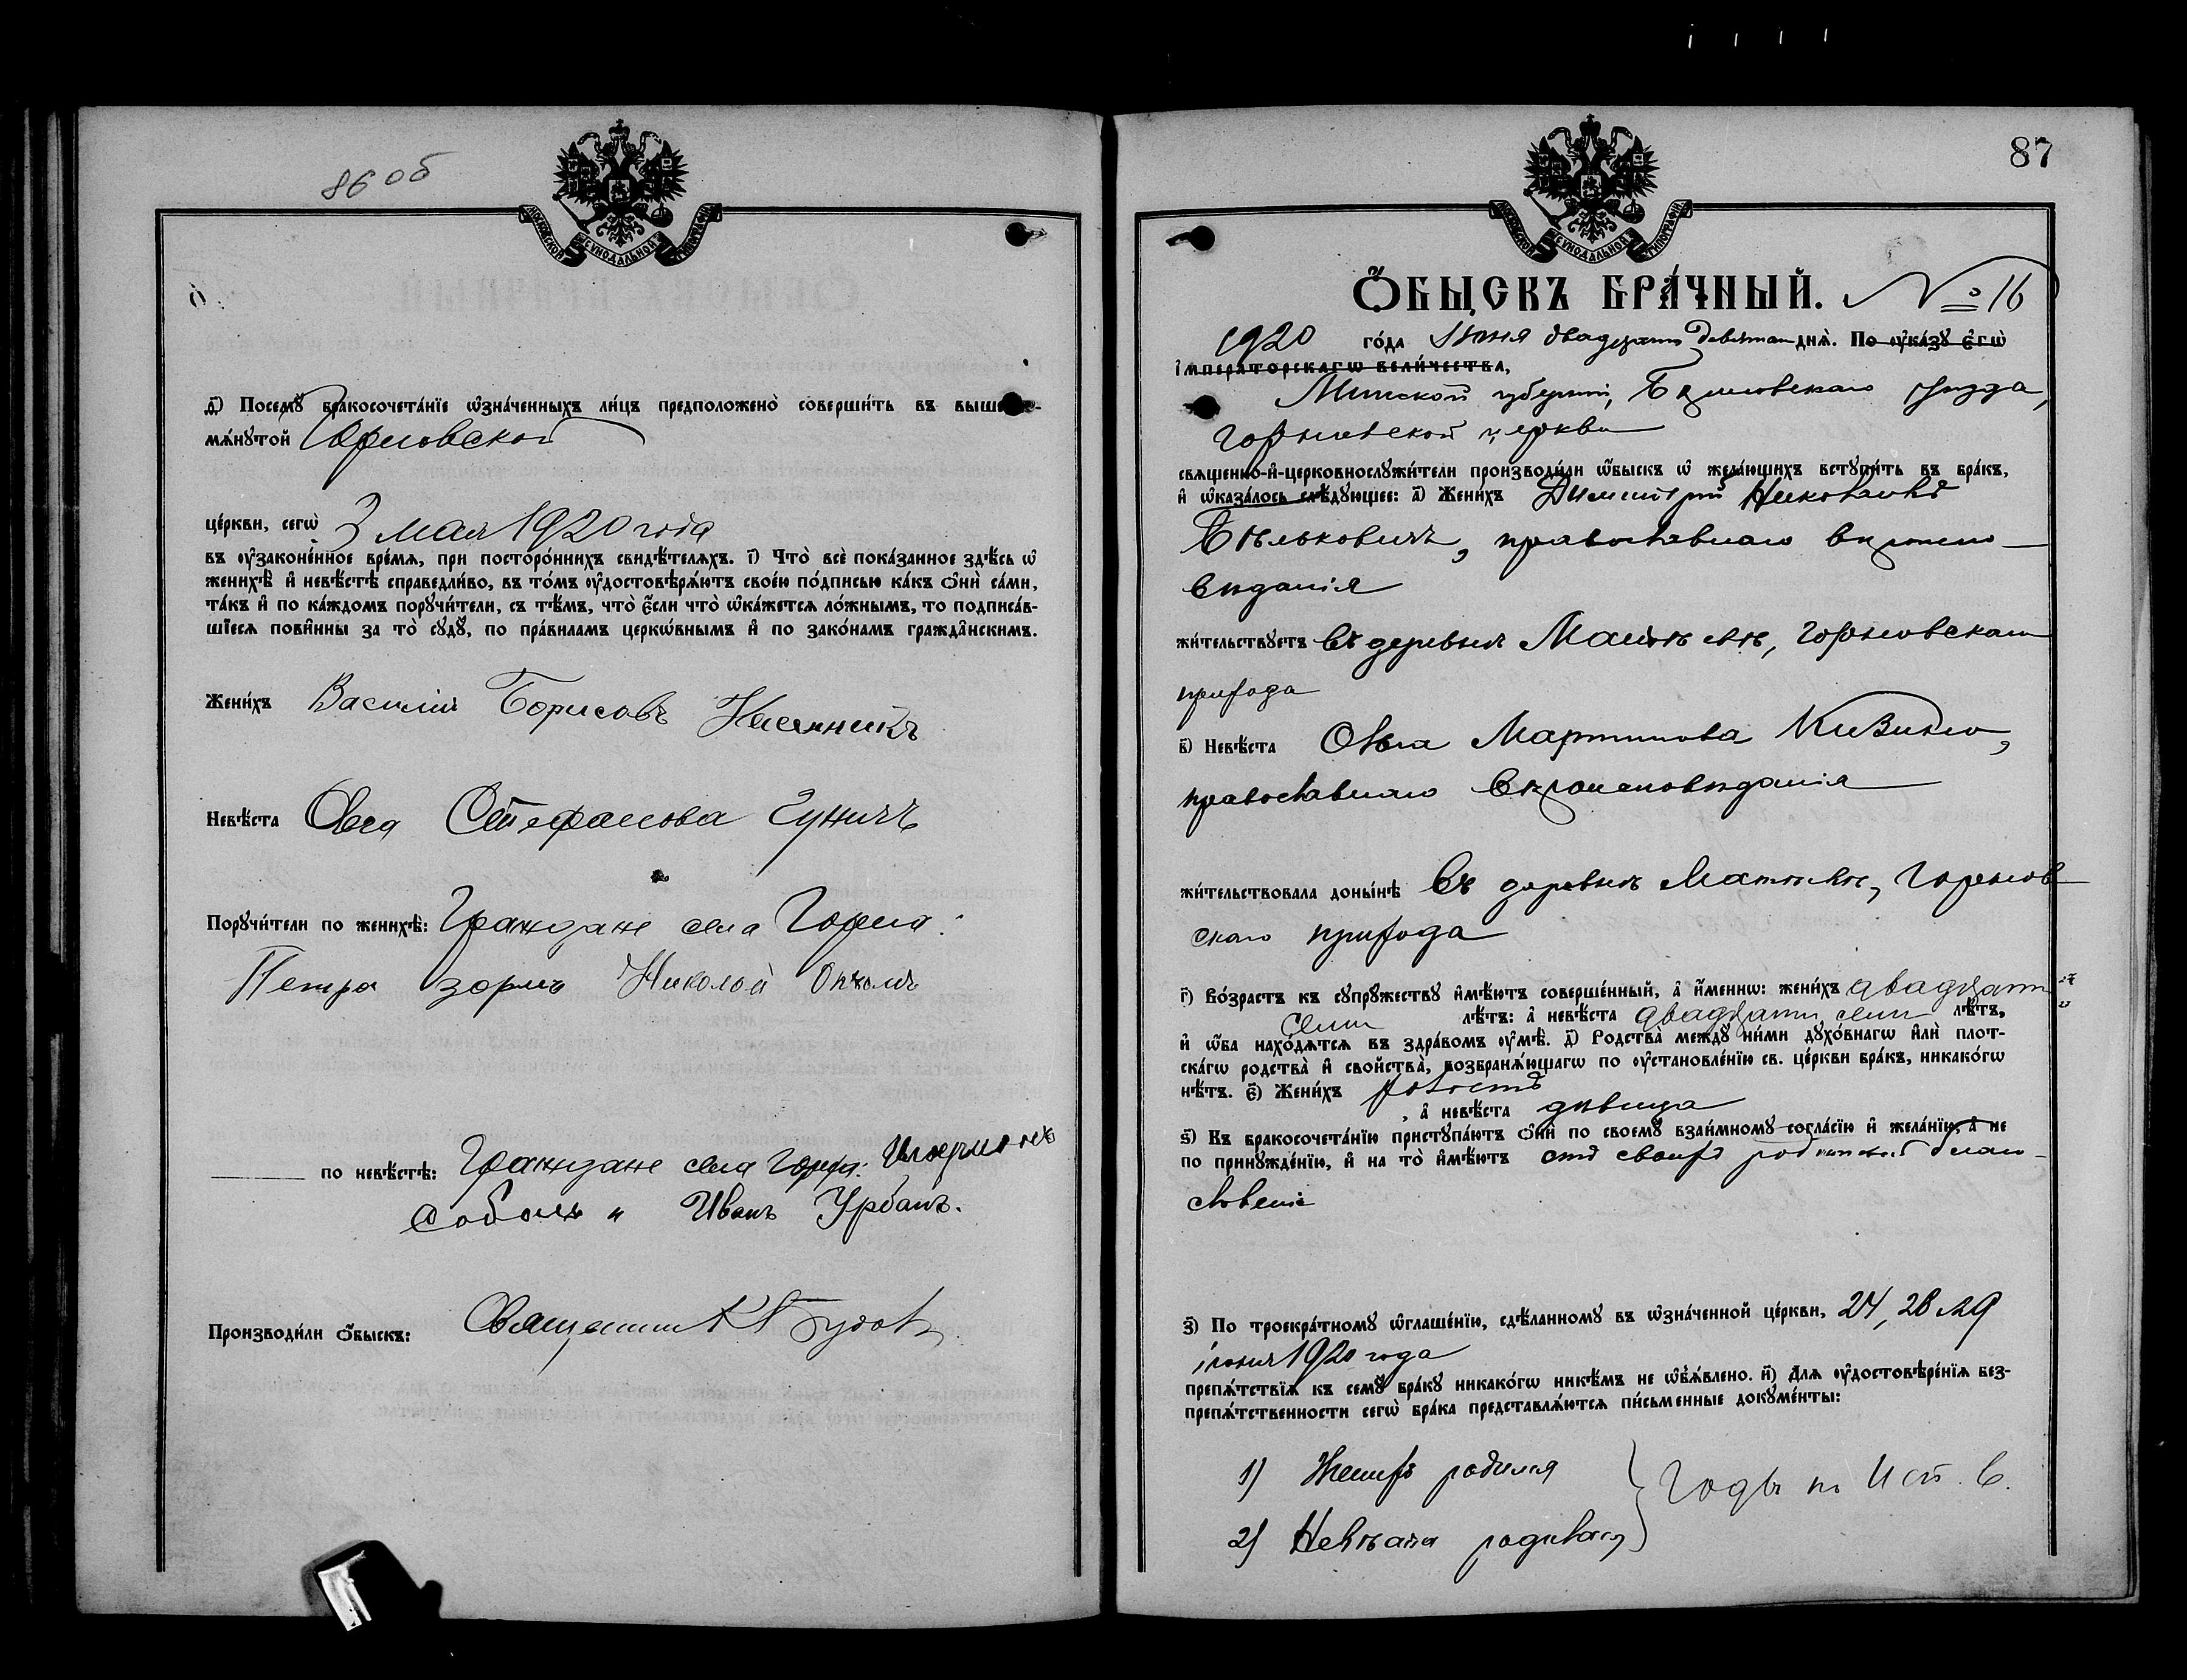 86 об
МОСКОВСКОЙ СУНОДАЛЬНОЙ ТИПОГРАФІИ
д҃) Посемꙋ̀ бракосочета́нїе ѡ҆зна́ченныхъ ли́цъ предположено̀ соверши́ть въ выше
мѧ́нꙋтой Горновской
це́ркви, сегѡ̀ 3 мая 1920 года
въ ᲂу҆зако́ненное вре́мѧ, при посторо́ннихъ свидѣ́телѧхъ. і҃) Что̀ всѐ пока́занное здѣ́сь ѡ҆
женихѣ̀ и҆ невѣ́стѣ справедли́во, въ то́мъ ᲂу҆достовѣрѧ́ютъ свое́ю по́дписью ка́къ ѻ҆нѝ са́ми,
та́къ и҆ по ка́ждомъ порꙋчи́тели, съ тѣ́мъ, что̀ є҆́сли что̀ ѡ҆ка́жетсѧ ло́жнымъ, то подписа́в-
шїесѧ пови́нны за то̀ сꙋдꙋ̀, по пра́виламъ церкѡ́внымъ и҆ по зако́намъ гражда́нскимъ.
Жени́хъ Василій Борисовъ
Невѣ́ста Стефанова Гуничъ
Порꙋчи́тели по женихѣ̀: Граждане села Горна:
Петръ Николай
по невѣ́стѣ: Граждане села Горна:
Соболь и Иванъ Урбанъ.
Производи́ли ѻ҆́быскъ: Священник
87
МОСКОВСКОЙ СУНОДАЛЬНОЙ ТИПОГРАФІИ
Ѻ҆́БЫСКЪ БРА́ЧНЫЙ. № 16
1920 го́да Іюня двадцать девятаго днѧ̀. По ᲂу҆ка́зꙋ є҆гѡ̀
і҆мпера́торскагѡ вели́чества,
Минской губерніи, уѣзда,
Горновской церкви
свѧще́нно-и҆-церковнослꙋжи́тели производи́ли ѡ҆́быскъ ѡ҆ жела́ющихъ встꙋпи́ть въ бра́къ,
и҆ ѡ҆каза́лось слѣ́дꙋющее: а҃) Жени́хъ Димитрій Николаевъ
Бѣльковичъ, православнаго вѣроиспо-
вѣданія
жи́тельствꙋетъ въ деревнѣ Горновскаго
прихода
в҃) Невѣ́ста Ольга Мартинова
православнаго вѣроисповѣданія
жи́тельствовала доны́нѣ въ деревнѣ Горнов
скаго прихода
г҃) Во́зрастъ къ сꙋпрꙋ́жествꙋ и҆мѣ́ютъ соверше́нный, а҆ и҆́меннѡ: жени́хъ двадцати
семи лѣ́тъ: а҆ невѣ́ста двадцати семи лѣ́тъ,
и҆ ѡ҆́ба нахо́дѧтсѧ въ здра́вомъ ᲂу҆мѣ̀. д҃) Родства̀ междꙋ̀ ни́ми дꙋхо́внагѡ и҆лѝ плот-
ска́гѡ родства̀ и҆ сво́йства̀, возбранѧ́ющагѡ по ᲂу҆становле́нїю св. це́ркви бра́къ, никако́гѡ
нѣ́тъ. є҃) Жени́хъ холостъ
, а҆ невѣ́ста дѣвица
ѕ҃) Къ бракосочета́нїю пристꙋпа́ютъ ѻ҆нѝ по своемꙋ̀ взаи́мномꙋ согла́сїю и҆ жела́нїю, а҆ не
по принꙋжде́нїю, и҆ на то̀ и҆мѣ́ютъ отъ своихъ родителей благо-
словеніе
з҃) По троекра́тномꙋ ѡ҆глаше́нїю, сдѣ́ланномꙋ въ ѡ҆зна́ченной це́ркви, 24, 28 и 29
іюня 1920 года
препѧ́тствїѧ къ семꙋ̀ бра́кꙋ никако́гѡ никѣ́мъ не ѡ҆б̾ѧ́влено. и҃) Длѧ ᲂу҆достовѣре́нїѧ без-
препѧ́тственности сегѡ̀ бра́ка представлѧ́ютсѧ пи́сьменные докꙋме́нты:
1) Женихъ родился
2) Невѣста родилась